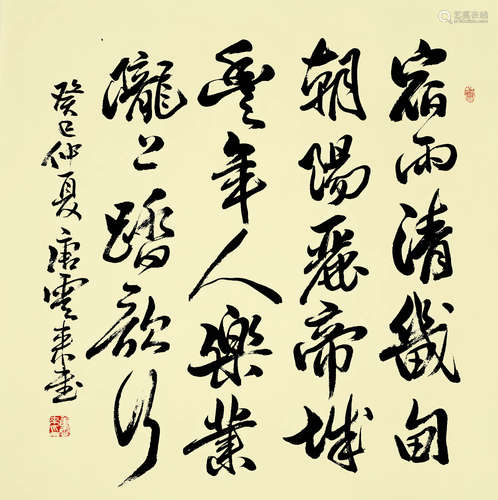 宿雨清畿甸
朝陽麗帝城
豐年人樂業
隴上踏歌行
癸巳仲夏唐雲来書